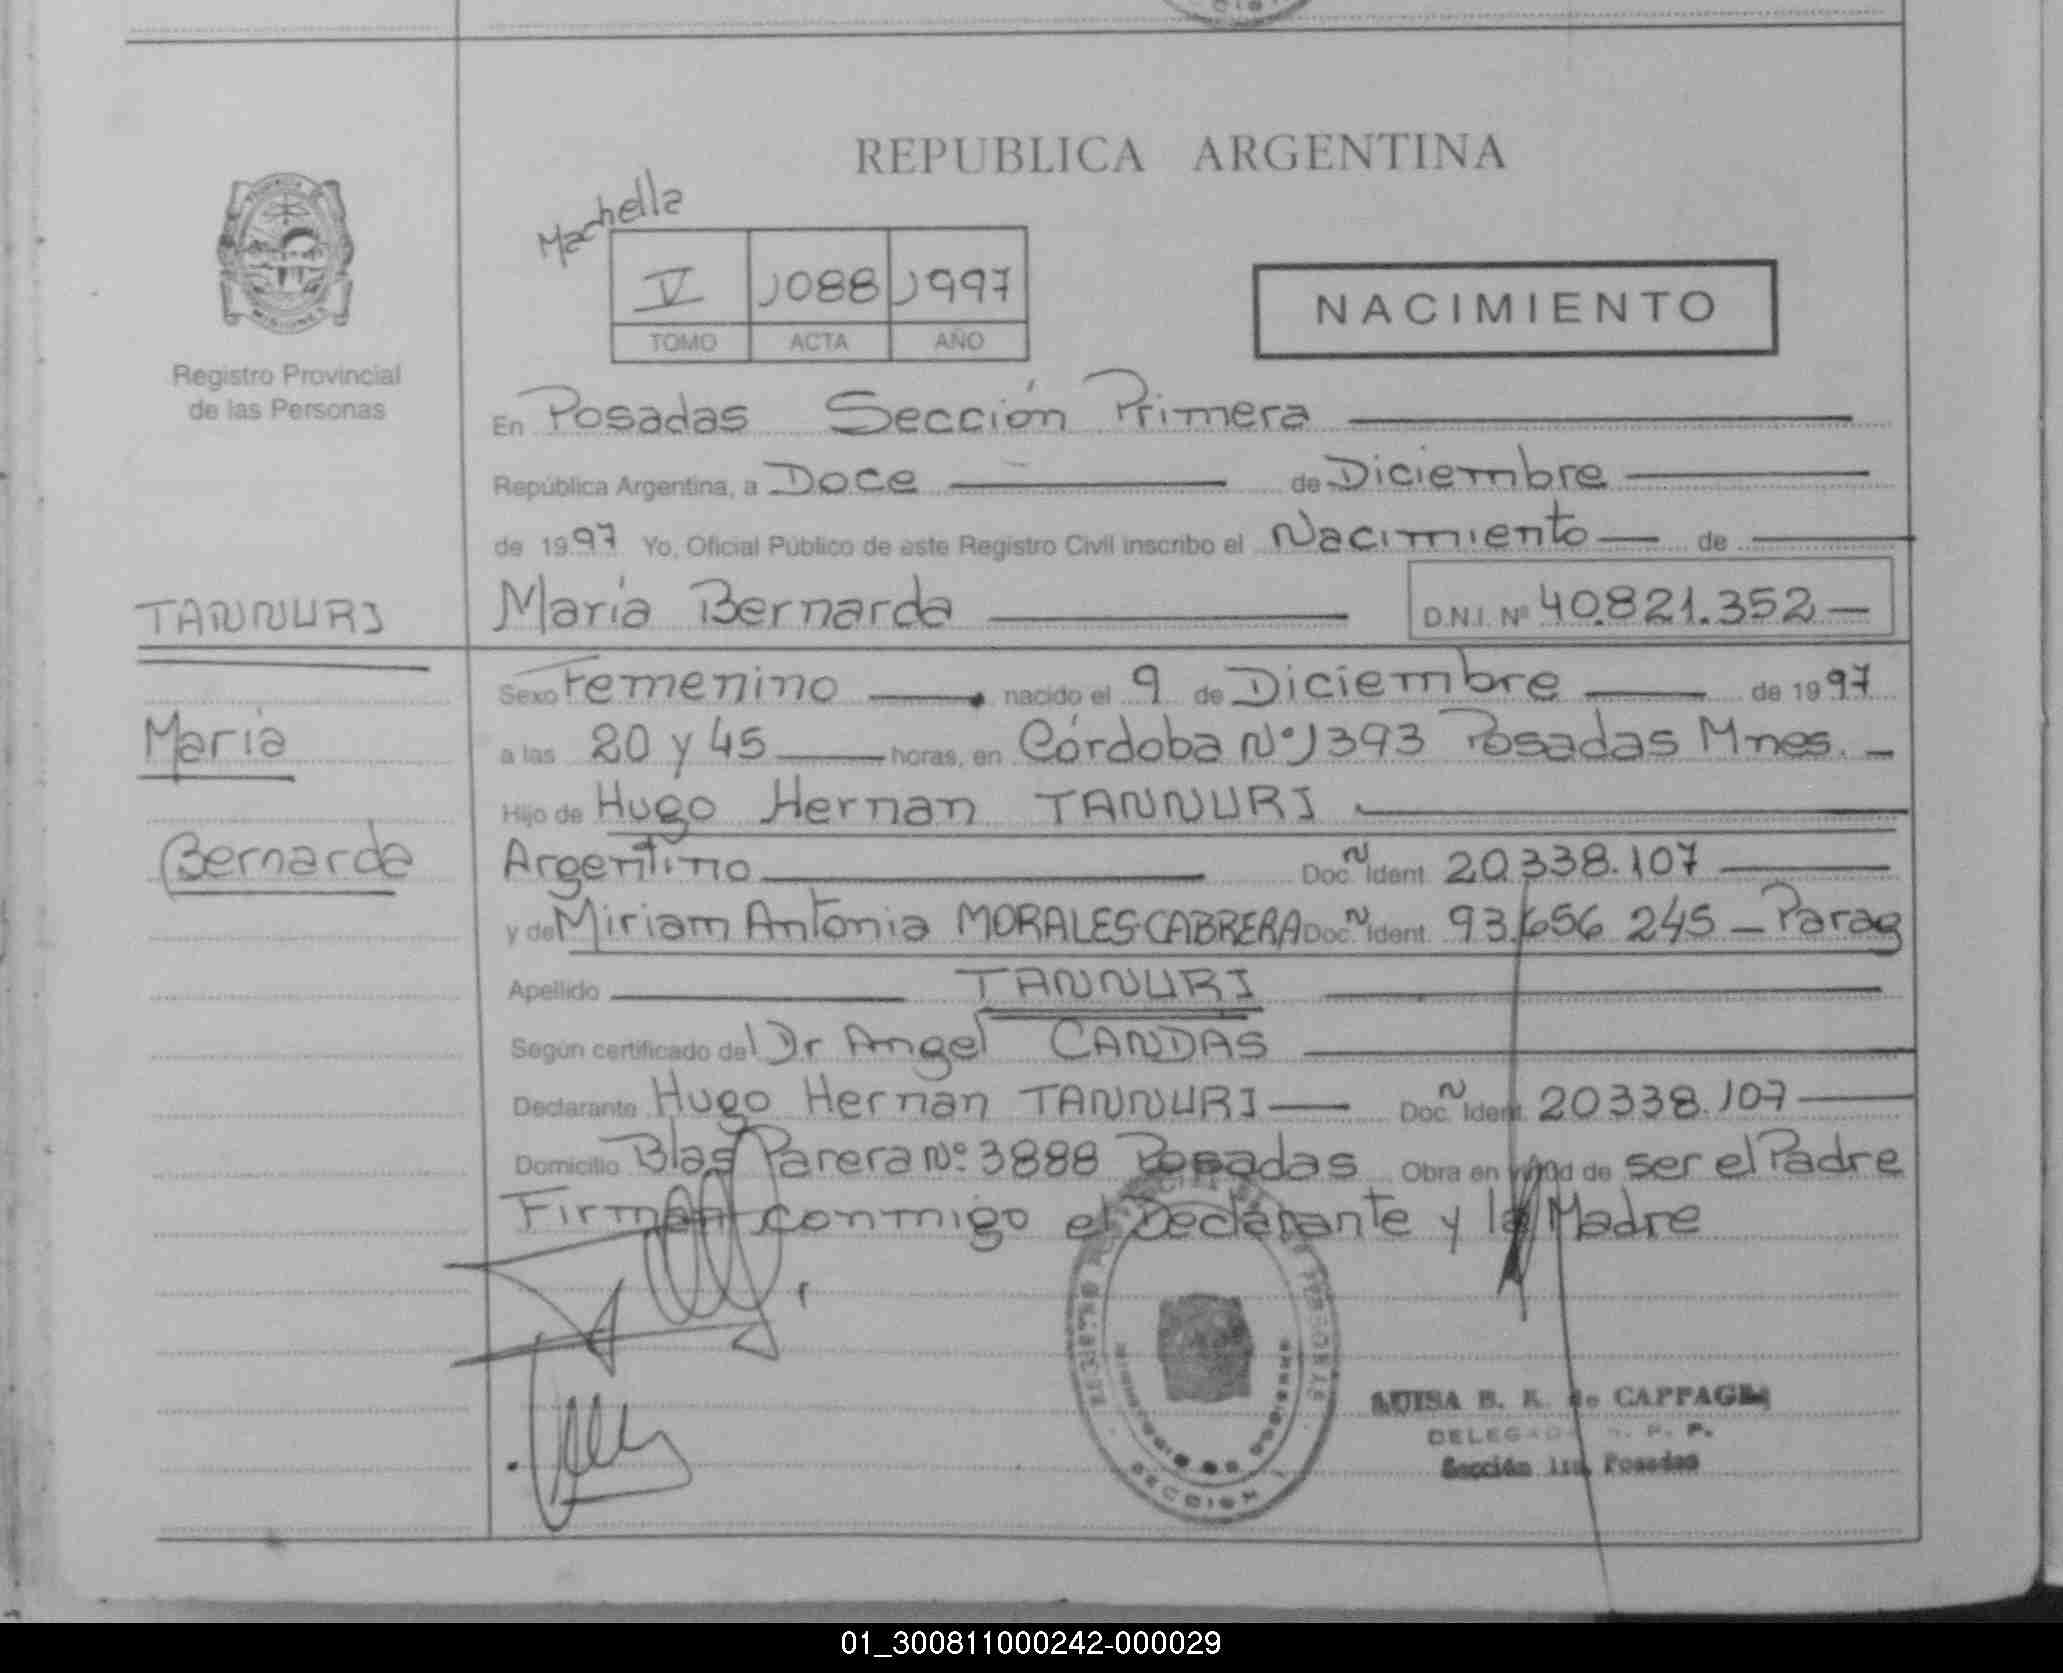 REPUBLICA ARGENTINA
Machella
V 1088 1997
TOMO ACTA AÑO
NACIMIENTO
MISIONES
Registro Provincial
de las Personas
En Posadas Sección Primera
República Argentina, a Doce de Diciembre
de 1997 Yo, Oficial Público de este Registro Civil inscribo el Nacimiento de
TANNURI
María Bernarda D.N.I. Nº 40.821.352
Sexo Femenino nacido el 9 de Diciembre de 1997
María
a las 20 y 45 horas, en Córdoba Nº 1393 Posadas Mnes.
Hijo de Hugo Hernan TANNURI
Bernarda
Argentino Doc. Ident. 20.338.107
y de Miriam Antonia MORALES-CABRERA Doc. Ident. 93.656 245 - Parag
Apellido TANNURI
Según certificado del Dr Angel CANDAS
Declarante Hugo Hernan TANNURI Doc. Ident. 20338.107
Domicilio Blas Parera Nº 3888 Posadas Obra en virtud de ser el Padre
Firman conmigo el Declarante y la Madre
SECCION
LUISA B. K. de CAPPAGLI
DELEGADA R. P. P.
Sección 1ra. Posadas
01_300811000242-000029